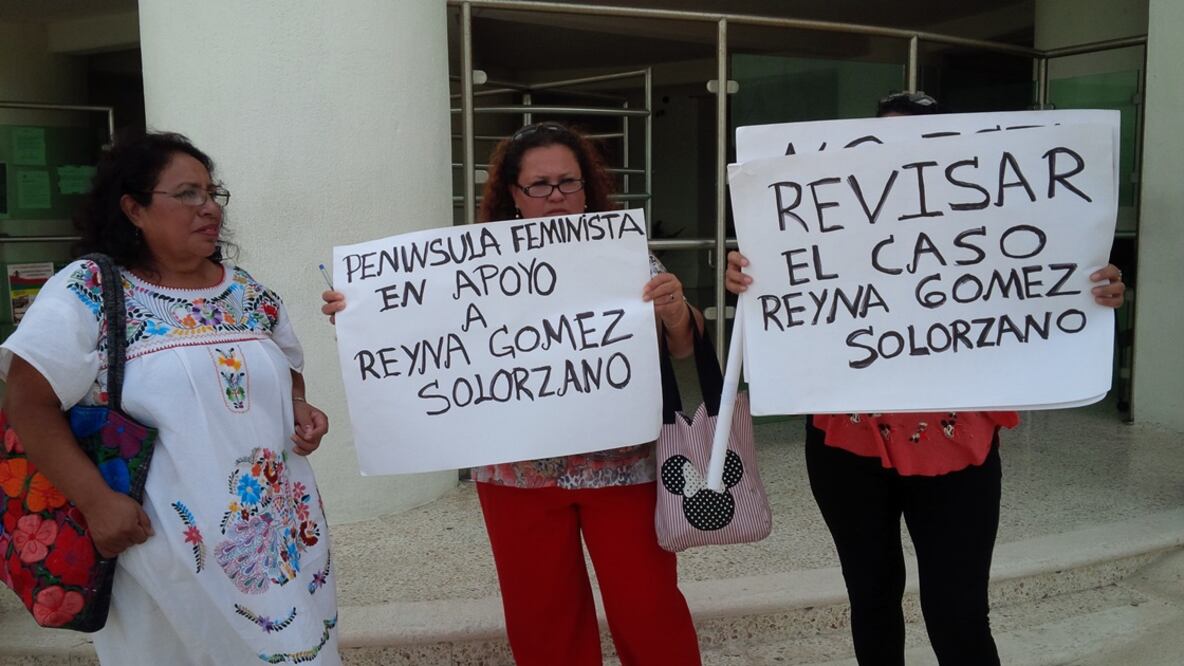 PENINSULA FEMINISTA
EN APOYO
A
REYNA GOMEZ
SOLORZANO
REVISAR
EL CASO
REYNA GOMEZ
SOLORZANO